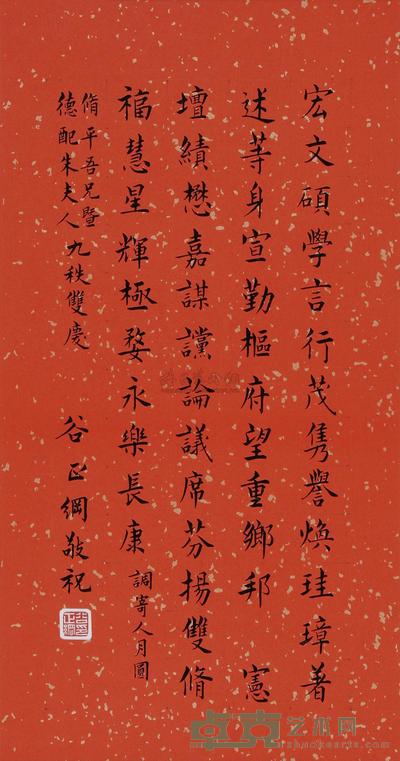 宏文碩學言行茂隽譽煥珪璋著
述等身宣勤樞府望重鄉邦 憲
壇績懋嘉謀讜論議席芬揚雙脩
福慧星輝極婺永樂長康 調寄人月圓
脩平吾兄暨
德配朱夫人 九秩雙慶
谷正綱敬祝
艺术网